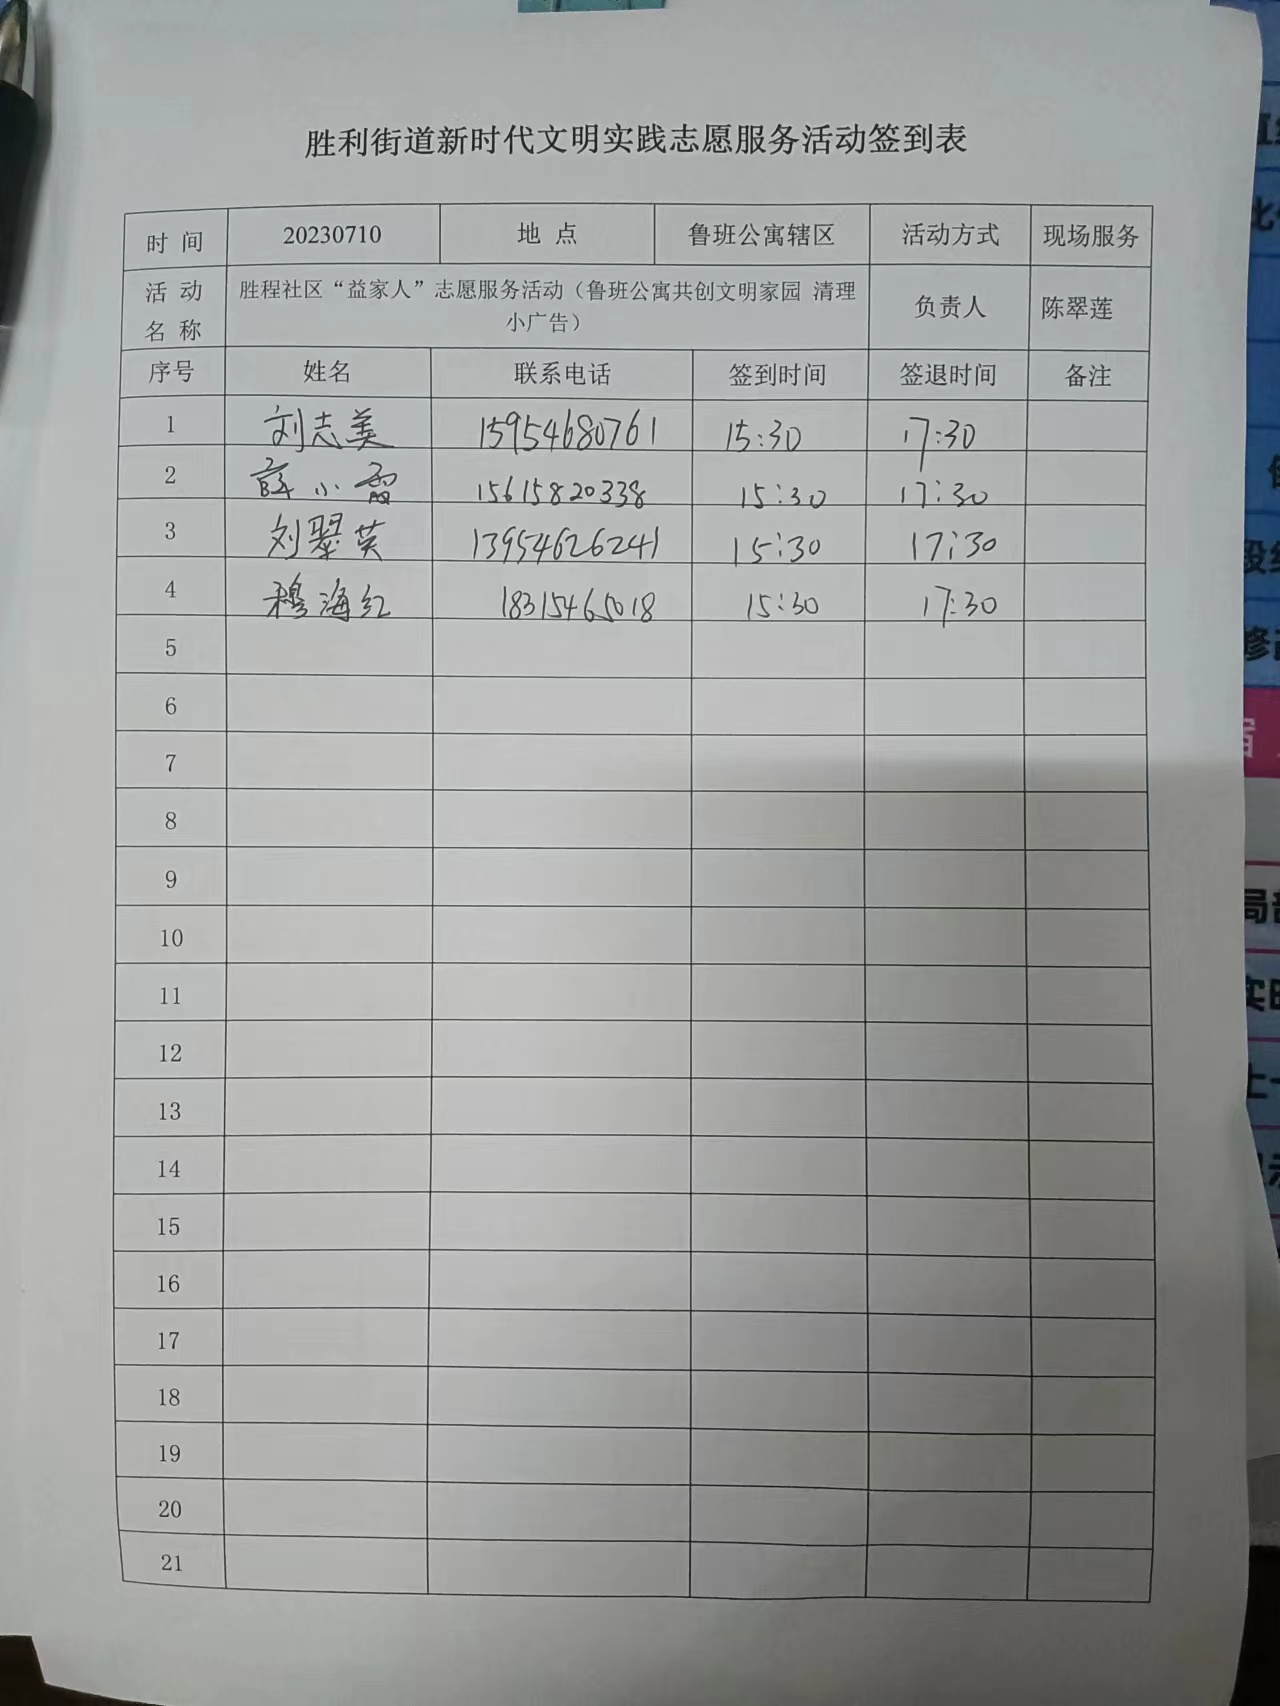 胜利街道新时代文明实践志愿服务活动签到表
时 间 20230710 地 点 鲁班公寓辖区 活动方式 现场服务
活 动 名 称 胜程社区“益家人”志愿服务活动（鲁班公寓共创文明家园 清理
小广告） 负责人 陈翠莲
序号 姓名 联系电话 签到时间 签退时间 备注
1 刘志美 15954680761 15:30 17:30
2 薛小霞 15615820338 15:30 17:30
3 刘翠英 13954626241 15:30 17:30
4 穆海红 18315465018 15:30 17:30
5
6
7
8
9
10
11
12
13
14
15
16
17
18
19
20
21